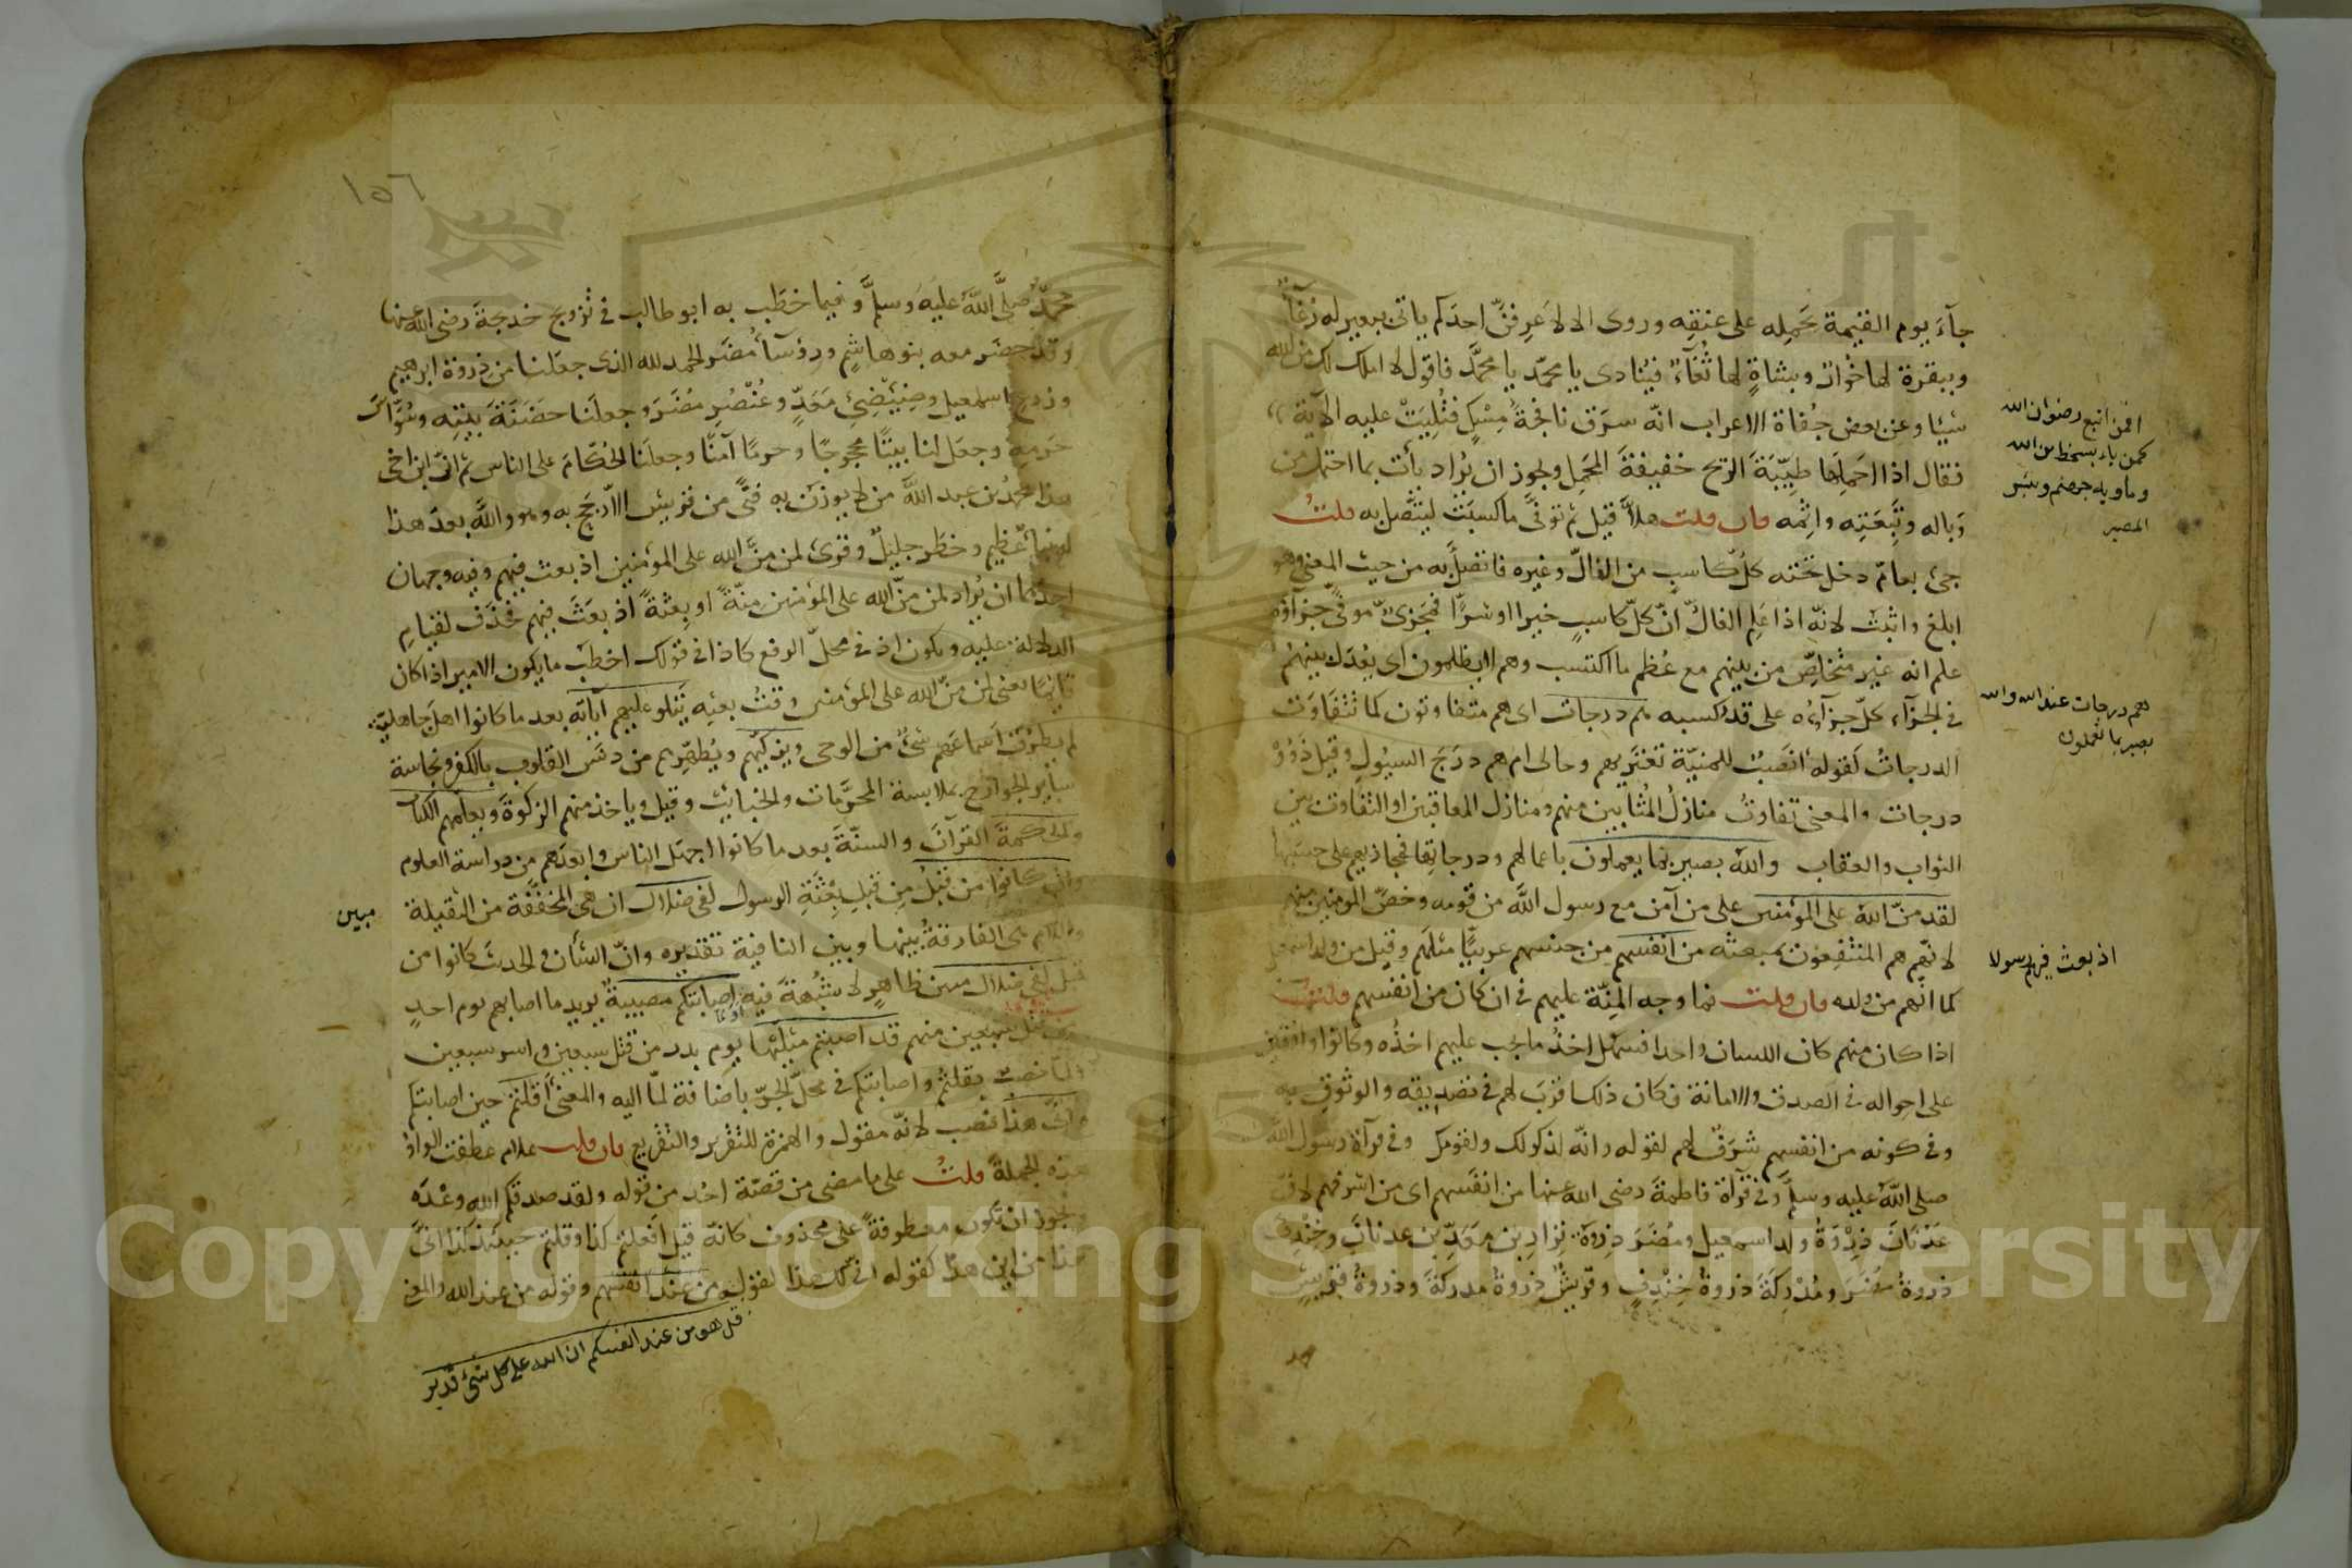 جآءَ يوم القيمة يحمله على عنقه وروى الا لا اعرفنّ احدكم ياتى ببعير له رُغآء
وببقرة لها خُوار وبشاةٍ لها ثُغآءٌ فيُنادى يا محمّد يا محمَّد فاقول لا املك لك من الله
شيئا وعن بعض جُفاة الاعراب انّه سرَق نافجةَ مِسْكٍ فتُلِيَتْ عليه الآية
فقال اذا احملها طيّبَةَ الريح خفيفةَ المحَمِل ويجوز ان يُراد يأت بما احتمل من
وَباله وتَبِعَتِه واثِمه فان قلت هلاَّ قيل ثم توفَّى ما كسبَتْ ليتَّصل به قلتُ
جئ بعامّ دخل تحته كلُّ كاسبٍ من الغالّ وغيره فاتصل به من حيث المعنى وهو
ابلغ واثبتَ لانّه اذا عَلِم الغالُّ انّ كلّ كاسبٍ خيرا او شرًّا فمَجزىٌّ موفًّى جزآؤه
علم انه غير متخلِّصٍ من بينهم مع عُظم ما اكتسب وهم لا يظلمون اى يُعدَل بينهُم
فى الجزآء كلٌّ جزآؤه على قدر كسبه هم درجات اى هم متفاوتون كما تتفاوَت
الدرجاتُ كقوله انَصْبُ للمنيّة تعتَريهم رجالى ام هم درَجَ السيُولِ وقيل ذَوُوْ
درجات والمعنى تفاوتُ منازلُ المُثابين منهم ومنازل المعاقبين او التفاوت بين
الثواب والعقاب والله بصير بما يعملون باعمالهم ودرجاتها فمجازيهم على حسَبها
لقد منّ الله على المؤمنين على من آمن مع رسول الله من قومه وخصَّ المؤمنين منهم
لانّهم هم المنتفِعُون بمبعثه من انفسهم من جنسهم عربيًّا مثلَهم وقيل من ولد اسمعيل
كما انّهم من ولده فان قلت فما وجه المِنّة عليهم فى ان كان من انفسهم قلت
اذا كان منهم كان اللسان واحدا فسهُل اخذُ ما يجب عليهم اخذُه وكانوا واقفين
على احواله فى الصدق والامانة فكان ذلك اقربَ لهم فى تصديقه والوثوق به
وفى كونه من انفسهم شَرَفٌ لهم لقوله وانّه لذكر لك ولقومك وفى قرآة رسول الله
صلى الله عليه وسلم وفى قرآة فاطمةَ رضى الله عنها من انفَسهم اى من اشرفهم لانّ
عَدْنانَ ذِرْوَةُ ولد اسمعيل ومُضَرَ ذِروَةُ نِزارِ بن مَعَدِّ بن عدنانَ وخِنْدِفَ
ذروةُ مُضَرَ ومُدْرِكَةَ ذروةُ خِنْدِفٍ وقريشٌ ذروةُ مدركةَ وذروةُ قريشٍ
افمن اتبع رضوان الله
كمن باء بسخط من الله
وماويه جهنم وبئس
المصير
هم درجات عند الله والله
بصير بما يعملون
اذ بعث فيهم رسولا
١٥٦
محمّدٌ صلَّى اللَّهُ عليه وسلم وفيما خطَب به ابو طالب فى تزويج خديجة رضى الله عنها
وقد حضَر معه بنو هاشمٍ ورؤسآءُ مُضَر الحمد لله الذى جعَلنا من ذروة ابرهيم
وزرع اسمعيل وضِئْضِئِ مَعَدٍّ وعُنْصُرِ مُضَرَ وجعلَنا حضَنَةَ بيتِه وسُوَّاسَ
حَرمِه وجعَل لنا بيتًا محجوجًا وحرمًا آمنًا وجعلَنا الحُكّامَ على الناس ثم انّ ابن اخى
هذا محمدُ بن عبد اللَّه من لا يوزَن به فتًى من قريش الا رجَح به وهو واللَّه بعدَ هذا
له نبأٌ عظيم وخطَر جليلٌ وقرئ لمن مَنِّ الله على المؤمنين اذ بعث فيهم وفيه وجهان
احدهما ان يُراد لمن منّ الله على المؤمنين منّهُ او بعثهُ اذ بعَثَ فيهم فحُذف لقيام
الدلالة عليه ويكون اذ فى محلّ الرفع كاذا فى قولك اخطب ما يكون الامير اذا كان
قائمًا بمعنى لمن منّ الله على المؤمنين وقتُ بعثِه يَتلو عليهم آياته بعد ما كانوا اهل جاهلية
لم يطرُق اسماعَهم شئٌ من الوحى ويزكّيهم ويُطهِّرهم من دنَس القلوب بالكفر ونجاسة
ساير الجوارح بملابسة المحرَّمات والخبايث وقيل وياخذ منهم الزكوةَ ويعلّمهم الكتاب
والحكمةَ القرآنَ والسنّةَ بعد ما كانوا اجهَل الناس وابعدَهم من دراسة العلوم
وان كانوا من قبلُ مِن قبلِ بِعْثَةِ الرسول لفى ضلال ان هى المخفَّفة من الثقيلة
واللام هى الفارقةُ بينها وبين النافية تقديره وانّ الشأن والحديثَ كانوا من
قبلُ لفى ضلال مبين ظاهرٍ لا شُبْهةَ فيه اصابتكم مصيبة يريد ما اصابهم يوم احدٍ
من قتل سبعين منهم قد اصبتم مثلَيْها يوم بدر من قتل سبعين واسر سبعين
ولمّا نصبٌ بقلتم واصابتكم فى محلّ الجرّ باضافة لمّا اليه والمعنى أقلتم حين اصابتكم
وانّى هذا نصب لانّه مقول والهمزة للتقرير والتقريع فان قلت علام عطفت الواوُ
هذه الجملةَ قلتُ على ما مضى من قصّة احُد من قوله ولقد صدقكم الله وعْدَه
ويجوز ان تكون معطوفةً على محذوف كانّه قيل افعلتم كذا وقلتم حينئذ كذا انّى
هذا من اين هذا كقوله انّى لك هذا لقوله من عند انفسهم وقوله من عند الله والمعنى
قل هو من عند انفسكم ان الله على كل شئ قدير
مبين